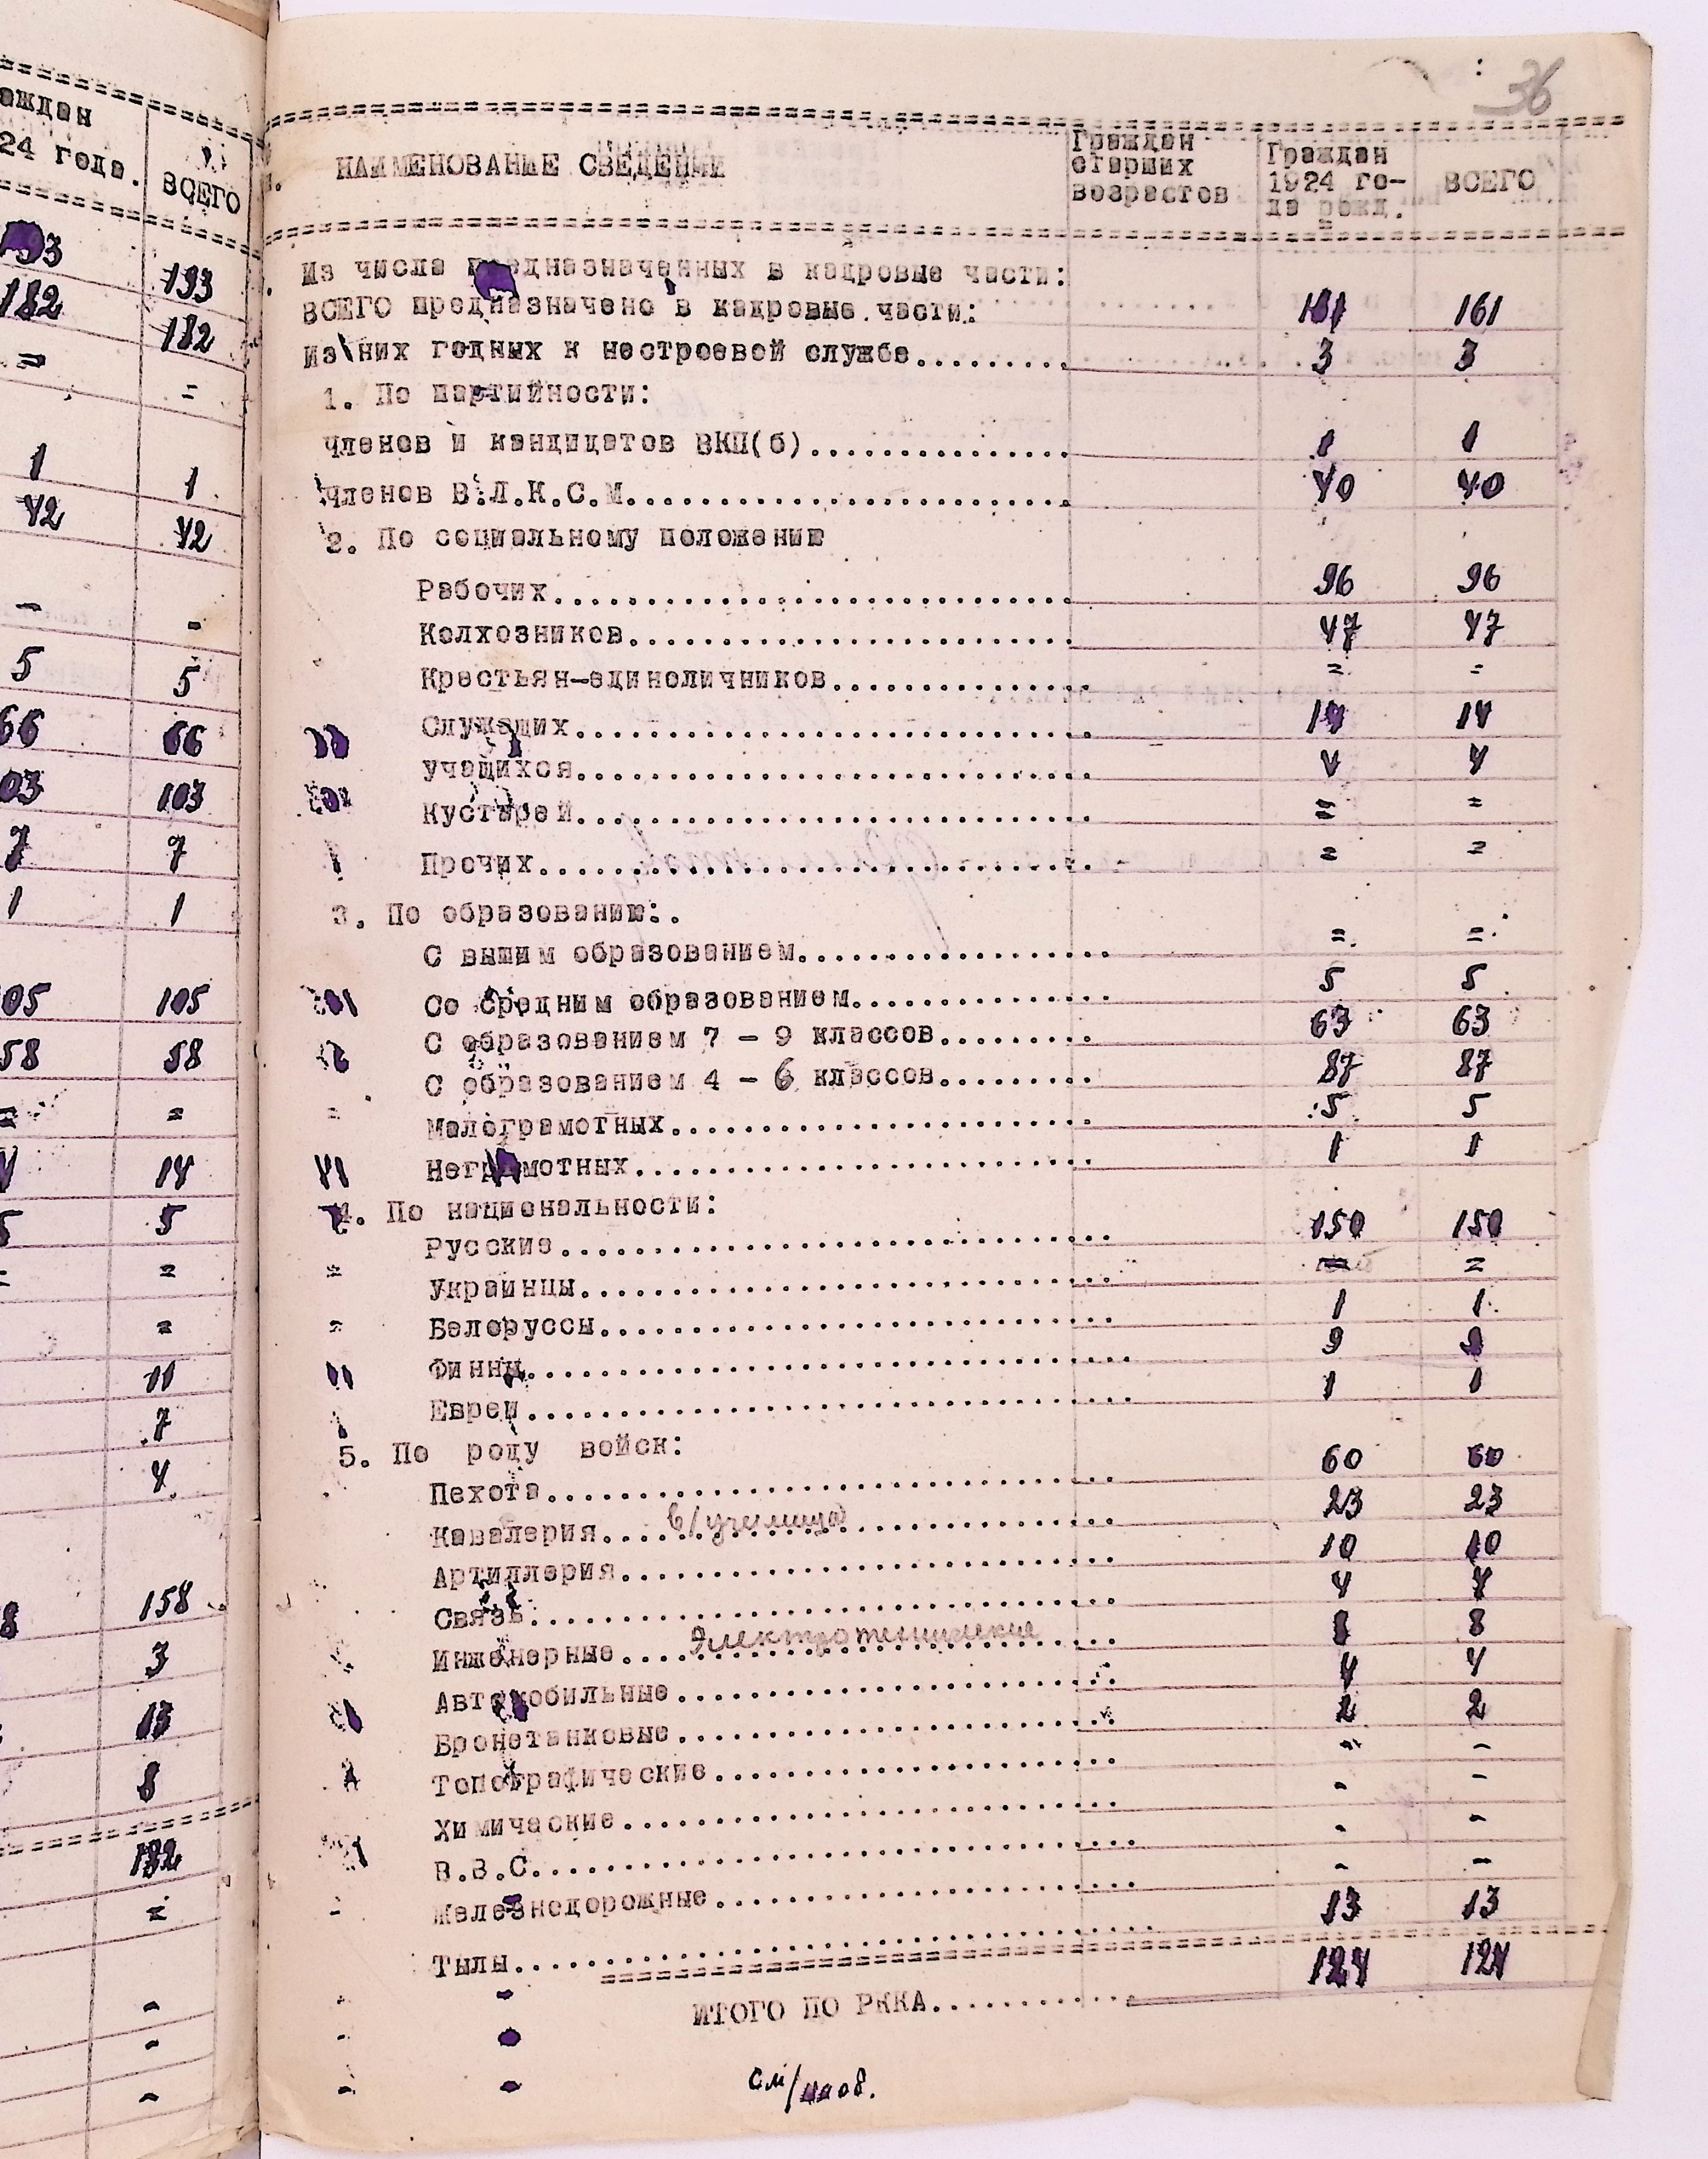 ждан
24 года.
ВСЕГО
193
182 182
= =
1 1
42 42
- -
5 5
66 66
03 103
7 7
1 1
05 105
58 58
= =
14
5 5
= =
=
11
7
4
8 158
3
13
8
182
=
-
-
-
36
НАИМЕНОВАНИЕ СВЕДЕНИЙ
Граждан старших возрастов
Граждан 1924 го- да рожд.
ВСЕГО
Из числа предназначенных в кадровые части:
ВСЕГО предназначено в кадровые части: 161 161
Из них годных к нестроевой службе......... 3 3
1. По партийности:
членов и кандидатов ВКП(б)............... 1 1
членов В.Л.К.С.М......................... 40 40
2. По социальному положению
Рабочих............................. 96 96
Колхозников......................... 47 47
Крестьян-единоличников.............. = =
Служащих............................ 14 14
учащихся............................ 4 4
Кустарей............................ = =
Прочих.............................. = =
3. По образованию:.
С вышим образованием................. = =
Со средним образованием.............. 5 5
С образованием 7 - 9 классов......... 63 63
С образованием 4 - 6 классов......... 87 87
Малограмотных....................... 5 5
Неграмотных......................... 1 1
4. По национальности:
Русские.............................. 150 150
Украинцы............................. = =
Белоруссы............................ 1 1
Финны................................ 9 9
Евреи................................ 1 1
5. По роду войск:
Пехота............................... 60 60
Кавалерия.... в/училища ............. 23 23
Артиллерия........................... 10 10
Связь................................ 4 4
Инженерные.... Электротехнические .... 8 8
Автомобильные........................ 4 4
Бронетанковые........................ 2 2
Топографические...................... - -
Химические........................... - -
В.В.С................................ - -
Железнодорожные...................... - -
Тылы................................. 13 13
ИТОГО ПО РККА........... 124 124
см/на об.